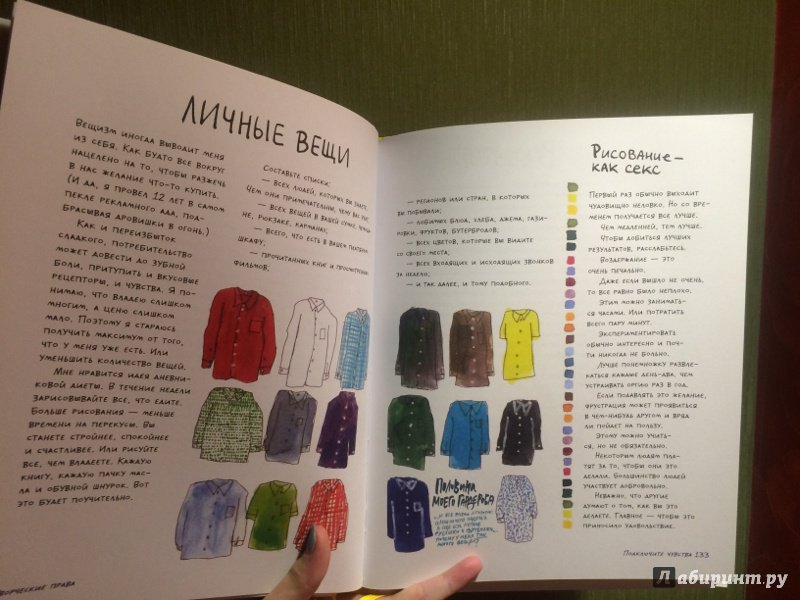 Личные вещи
Вещизм иногда выводит меня
из себя. Как будто все вокруг
нацелено на то, чтобы разжечь
в нас желание что-то купить.
(И да, я провел 12 лет в самом
пекле рекламного ада, под-
брасывая дровишки в огонь.)
Как и переизбыток
сладкого, потребительство
может довести до зубной
боли, притупить и вкусовые
рецепторы, и чувства. Я по-
нимаю, что владею слишком
многим, а ценю слишком
мало. Поэтому я стараюсь
получить максимум от того,
что у меня уже есть. Или
уменьшить количество вещей.
Мне нравится идея дневни-
ковой диеты. В течение недели
зарисовывайте все, что едите.
Больше рисования — меньше
времени на перекусы. Вы
станете стройнее, спокойнее
и счастливее. Или рисуйте
все, чем владеете. Каждую
книгу, каждую пачку мас-
ла и обувной шнурок. Вот
это будет поучительно.
Составьте списки:
— всех людей, которых вы знаете.
Чем они примечательны, чем вас
— всех вещей в вашей сумке,
не, рюкзаке, карманах;
— всего, что есть в вашем платяном
шкафу;
— прочитанных книг и просмотренных
фильмов;
ворческие права
— регионов или стран, в которых
вы побывали;
— любимых блюд, хлеба, джема, гази-
ровки, фруктов, бутербродов;
— всех цветов, которые вы видите
со своего места;
— всех входящих и исходящих звонков
за неделю;
— и так далее, и тому подобного.
Половина
моего гардероба
Рисование —
как секс
Первый раз обычно выходит
чудовищно неловко. Но со вре-
менем получается все лучше.
Чем медленней, тем лучше.
Чтобы добиться лучших
результатов, расслабьтесь.
Воздержание — это
очень печально.
Даже если вышло не очень,
то все равно было неплохо.
Этим можно заниматься
часами. Или потратить
всего пару минут.
Экспериментировать
обычно интересно и поч-
ти никогда не больно.
Лучше понемножку развле-
каться каждые день-два, чем
устраивать оргию раз в год.
Если подавлять это желание,
фрустрация может проявиться
в чем-нибудь другом и вряд
ли пойдет на пользу.
Этому можно учить-
ся, но не обязательно.
Некоторым людям пла-
тят за то, чтобы они это
делали. Большинство людей
участвует добровольно.
Неважно, что другие
думают о том, как вы это
делаете. Главное — чтобы это
приносило удовольствие.
Подключите чувства 133
Лабиринт.ру